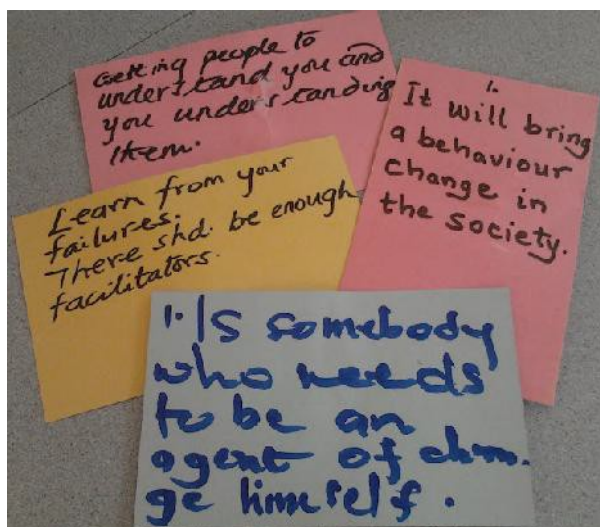 Getting people to
understand you and
you understanding
them.
1.
It will bring
a behaviour
change in
the society.
Learn from your
failures.
There shd. be enough
facilitators.
1. IS somebody
who needs
to be an
agent of chan.
ge himself.